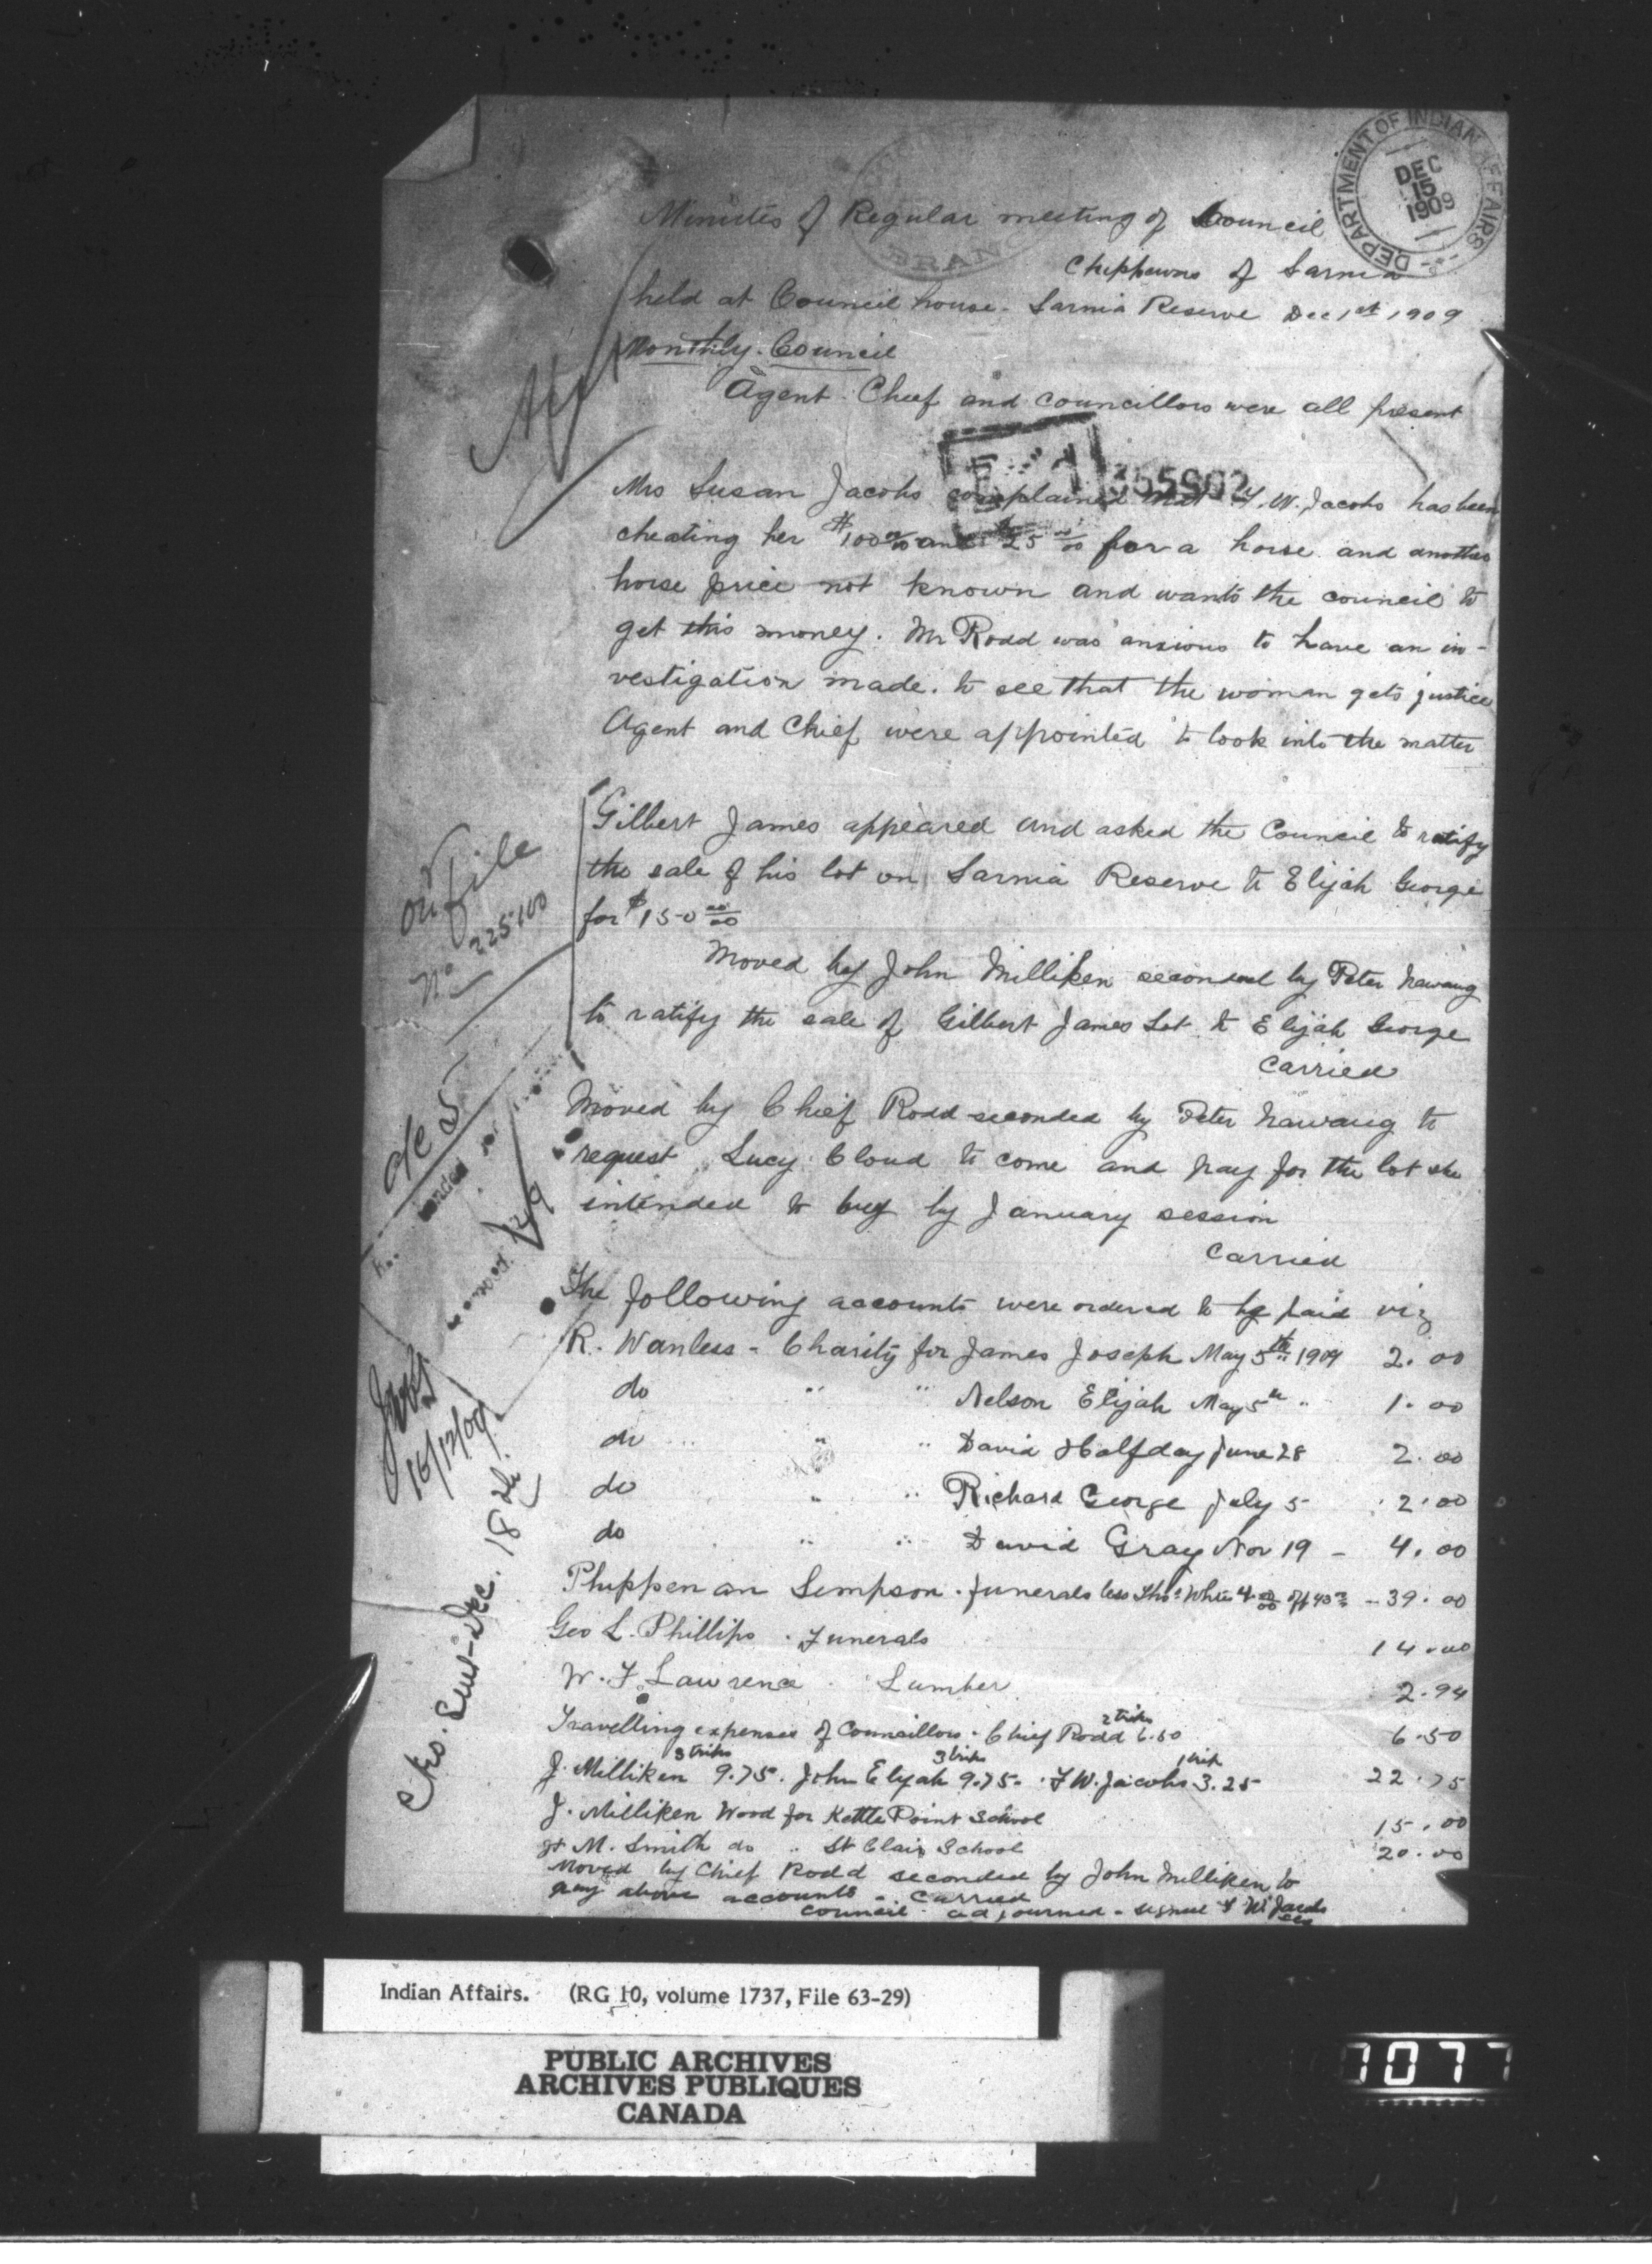 DEPARTMENT OF INDIAN AFFAIRS
DEC
15
1909
BRANC
Minutes of Regular meeting of Council
Chippewas of Sarnia
held at Council house - Sarnia Reserve Dec 1st 1909
Monthly Council
Agent Chief and councillors were all present
Mrs Susan Jacobs complained that F. W. Jacobs has been
cheating her $100 00/00 and $25 00/00 for a horse and another
horse price not known and wants the council to
get this money. Mr Rodd was anxious to have an in-
vestigation made. to see that the woman gets justice
Agent and Chief were appointed to look into the matter
Gilbert James appeared and asked the Council to ratify
the sale of his lot on Sarnia Reserve to Elijah George
for $150 00/00
Moved by John Milliken seconded by Peter Nawaug
to ratify the sale of Gilbert James Lot to Elijah George
Carried
Moved by Chief Rodd seconded by Peter Nawaug to
request Lucy Cloud to come and pay for the lot she
intended to buy by January session
Carried
The following accounts were ordered to be paid viz
R. Wanless - Charity for James Joseph May 5th 1909 2.00
do " " Nelson Elijah May 5th " 1.00
do " " David Halfday June 28 2.00
do " " Richard George July 5 2.00
do " " David Gray Nov 19 - 4.00
Phippen an Simpson. funerals less Thos White 4.00/00 off 43 00/00 - 39.00
Geo L. Phillips. Funerals 14.00
W. F. Lawrence. Lumber 2.94
Travelling expenses of Councillors - Chief Rodd 2 trips 6.50 6.50
J. Milliken 3 trips 9.75. John Elijah 3 trips 9.75. F W. Jacobs 1 trip 3.25 22.75
J. Milliken Wood for Kettle Point School 15.00
M. Smith do " St Clair School 20.00
Moved by Chief Rodd seconded by John Milliken to
pay above accounts - Carried
Council adjourned - signed F W. Jacobs
Sec
on file
No 225100
16/12/09
Dec. 18th
Indian Affairs. (RG 10, volume 1737, File 63-29)
PUBLIC ARCHIVES
ARCHIVES PUBLIQUES
CANADA
7077